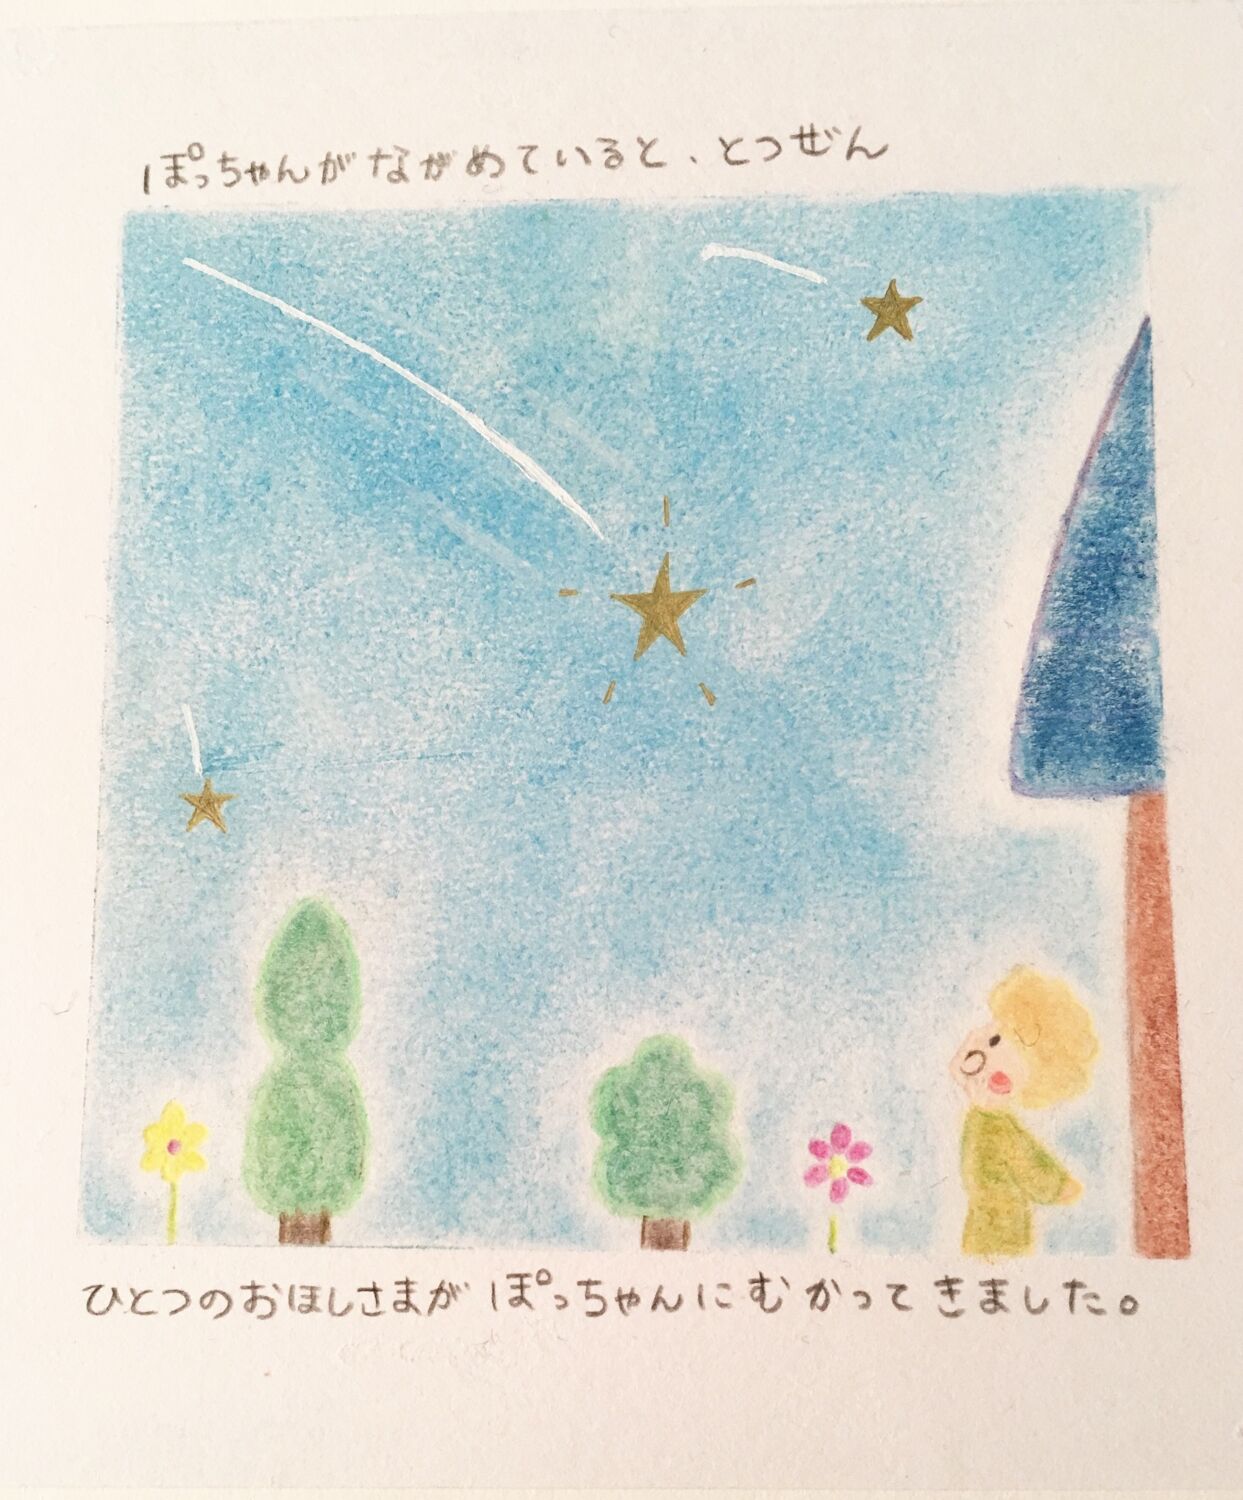 ぽっちゃんがながめていると、とつぜん
ひとつのおほしさまが ぽっちゃんにむかってきました。